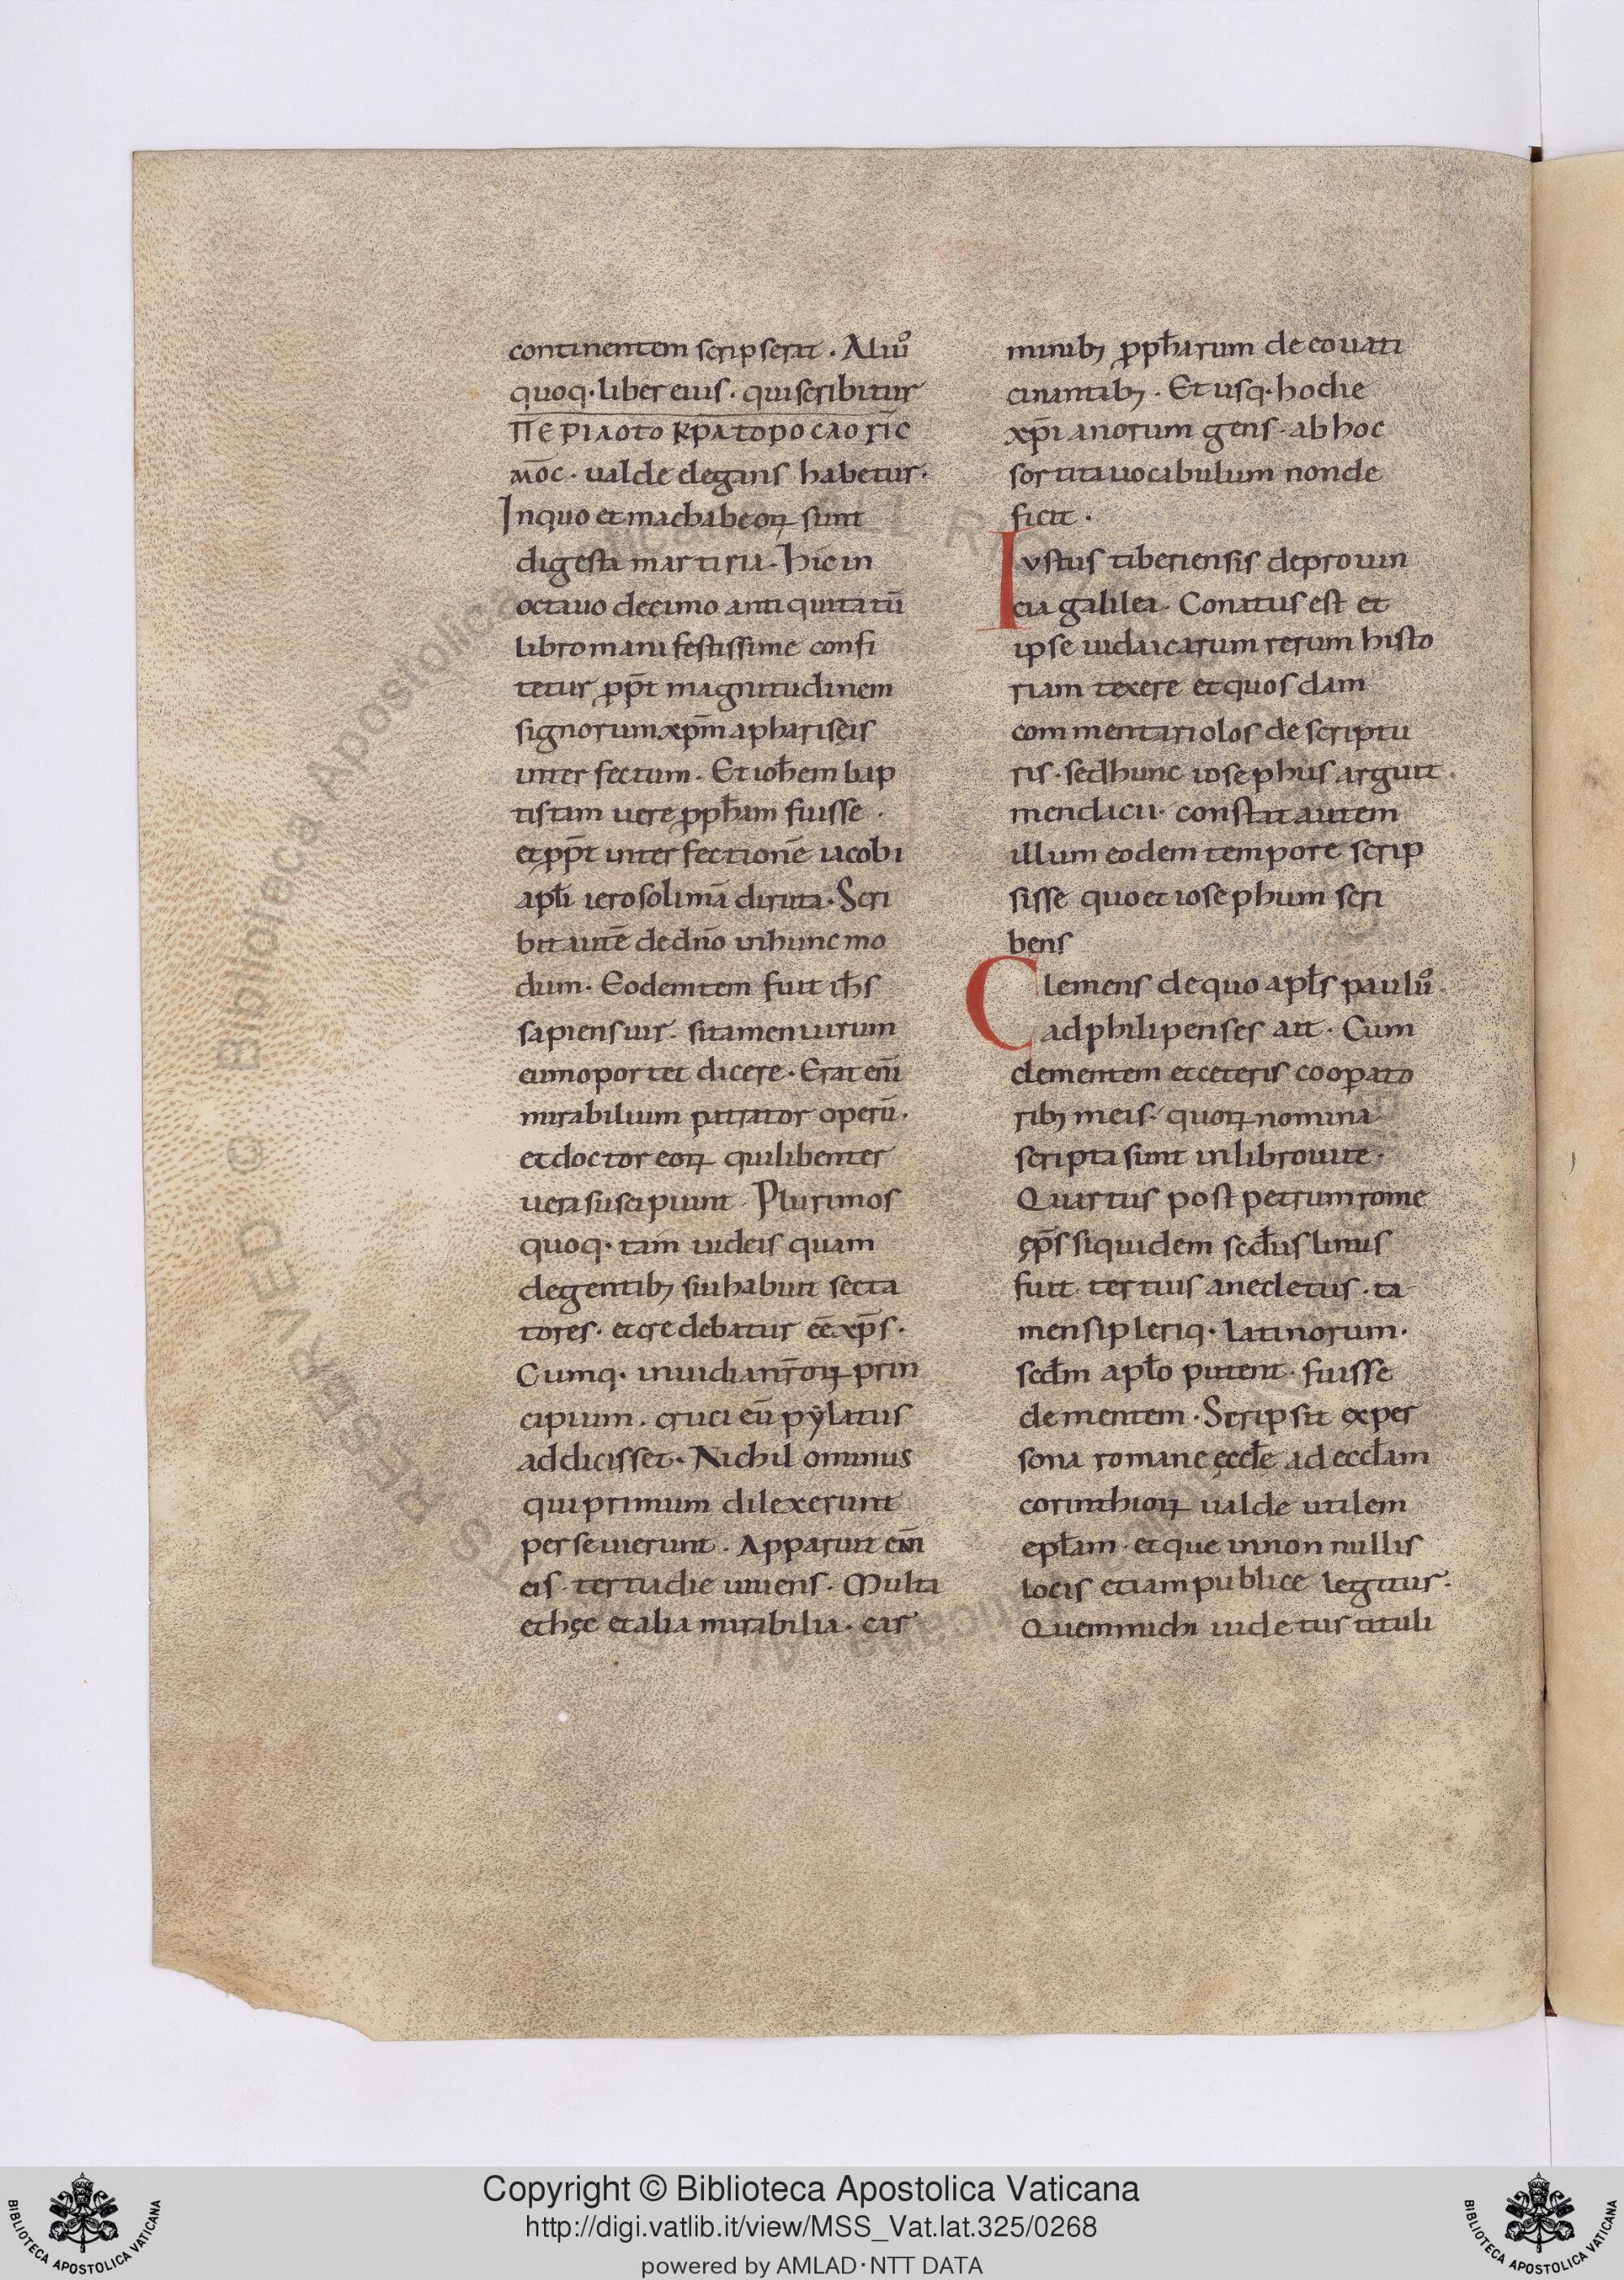 continentem scripserat. Aliuͦ
quoq· liber eius· qui scribitur
ΠЄΡΙΛΟΤΟ ΚΡΑΤΟΡΟC ΛΟΓΙC̄
M̄OC· ualde elegans habetur·
In quo et machabeoꝝ sunt
digesta martiria. Hic in
octauo decimo antiquitatū
libro manifestissime confi
tetur ꝓpt̄ magnitudinem
signorum xp̄m a phariseis
interfectum. Et ioh̄em bap
tistam uere ꝓph̄am fuisse·
et ꝓpt̄ interfectionē iacobi
apłi ierosolimā diruta. Scri
bit autē de dn̄o in hunc mo
dum. Eodem tem fuit ih̄s
sapiens uir. si tamen uirum
eum oportet dicere. Erat eni̅
mirabilium patrator operū.
et doctor eoꝝ qui libenter
uera suscipiunt. Plurimos
quoq· tam iudeis quam
de gentibꝫ sui habuit secta
tores. et credebatur eē xp̄s.
Cumq· inuidia nr̄oꝝ prin
cipium. cruci eū pẏlatus
addicisset. Nichil ominus
qui primum dilexerunt
perseuerunt. Apparuit eni̅
eis tertia die uiuens. Multa
et hęc et alia mirabilia. car
minibꝫ ꝓph̄arum de eo uati
cinantibꝫ. Et usq· hodie
xp̄ianorum gens ab hoc
sortita uocabulum non de
ficit.
Iustus tiberiensis de prouin
cia galilea. Conatus est et
ipse iudaicarum rerum histo
riam texere et quosdam
commentariolos de scriptu
ris. sed hunc iosephus arguit.
mendacii. constat autem
illum eodem tempore scrip
sisse quo et iosephum scri
bens
Clemens de quo apłs pauluͦ
ad philipenses ait. Cum
clementem et ceteris cooꝑato
ribꝫ meis. quoꝝ nomina
scripta sunt in libro uite.
Quartus post petrum rome
ęp̄s siquidem scđus linus
fuit tertius anecletus. ta
mensi pleriq· latinorum.
scđm apło putent. fuisse
clementem. Scripsit ex per
sona romane ęccłe ad eccłam
corinthioꝝ ualde utilem
epłam. et que in non nullis
locis etiam publice legitur.
Quem michi uidetus tituli
Copyright © Biblioteca Apostolica Vaticana
http://digi.vatlib.it/view/MSS_Vat.lat.325/0268
powered by AMLAD·NTT DATA
BIBLIOTECA APOSTOLICA VATICANA
BIBLIOTECA APOSTOLICA VATICANA